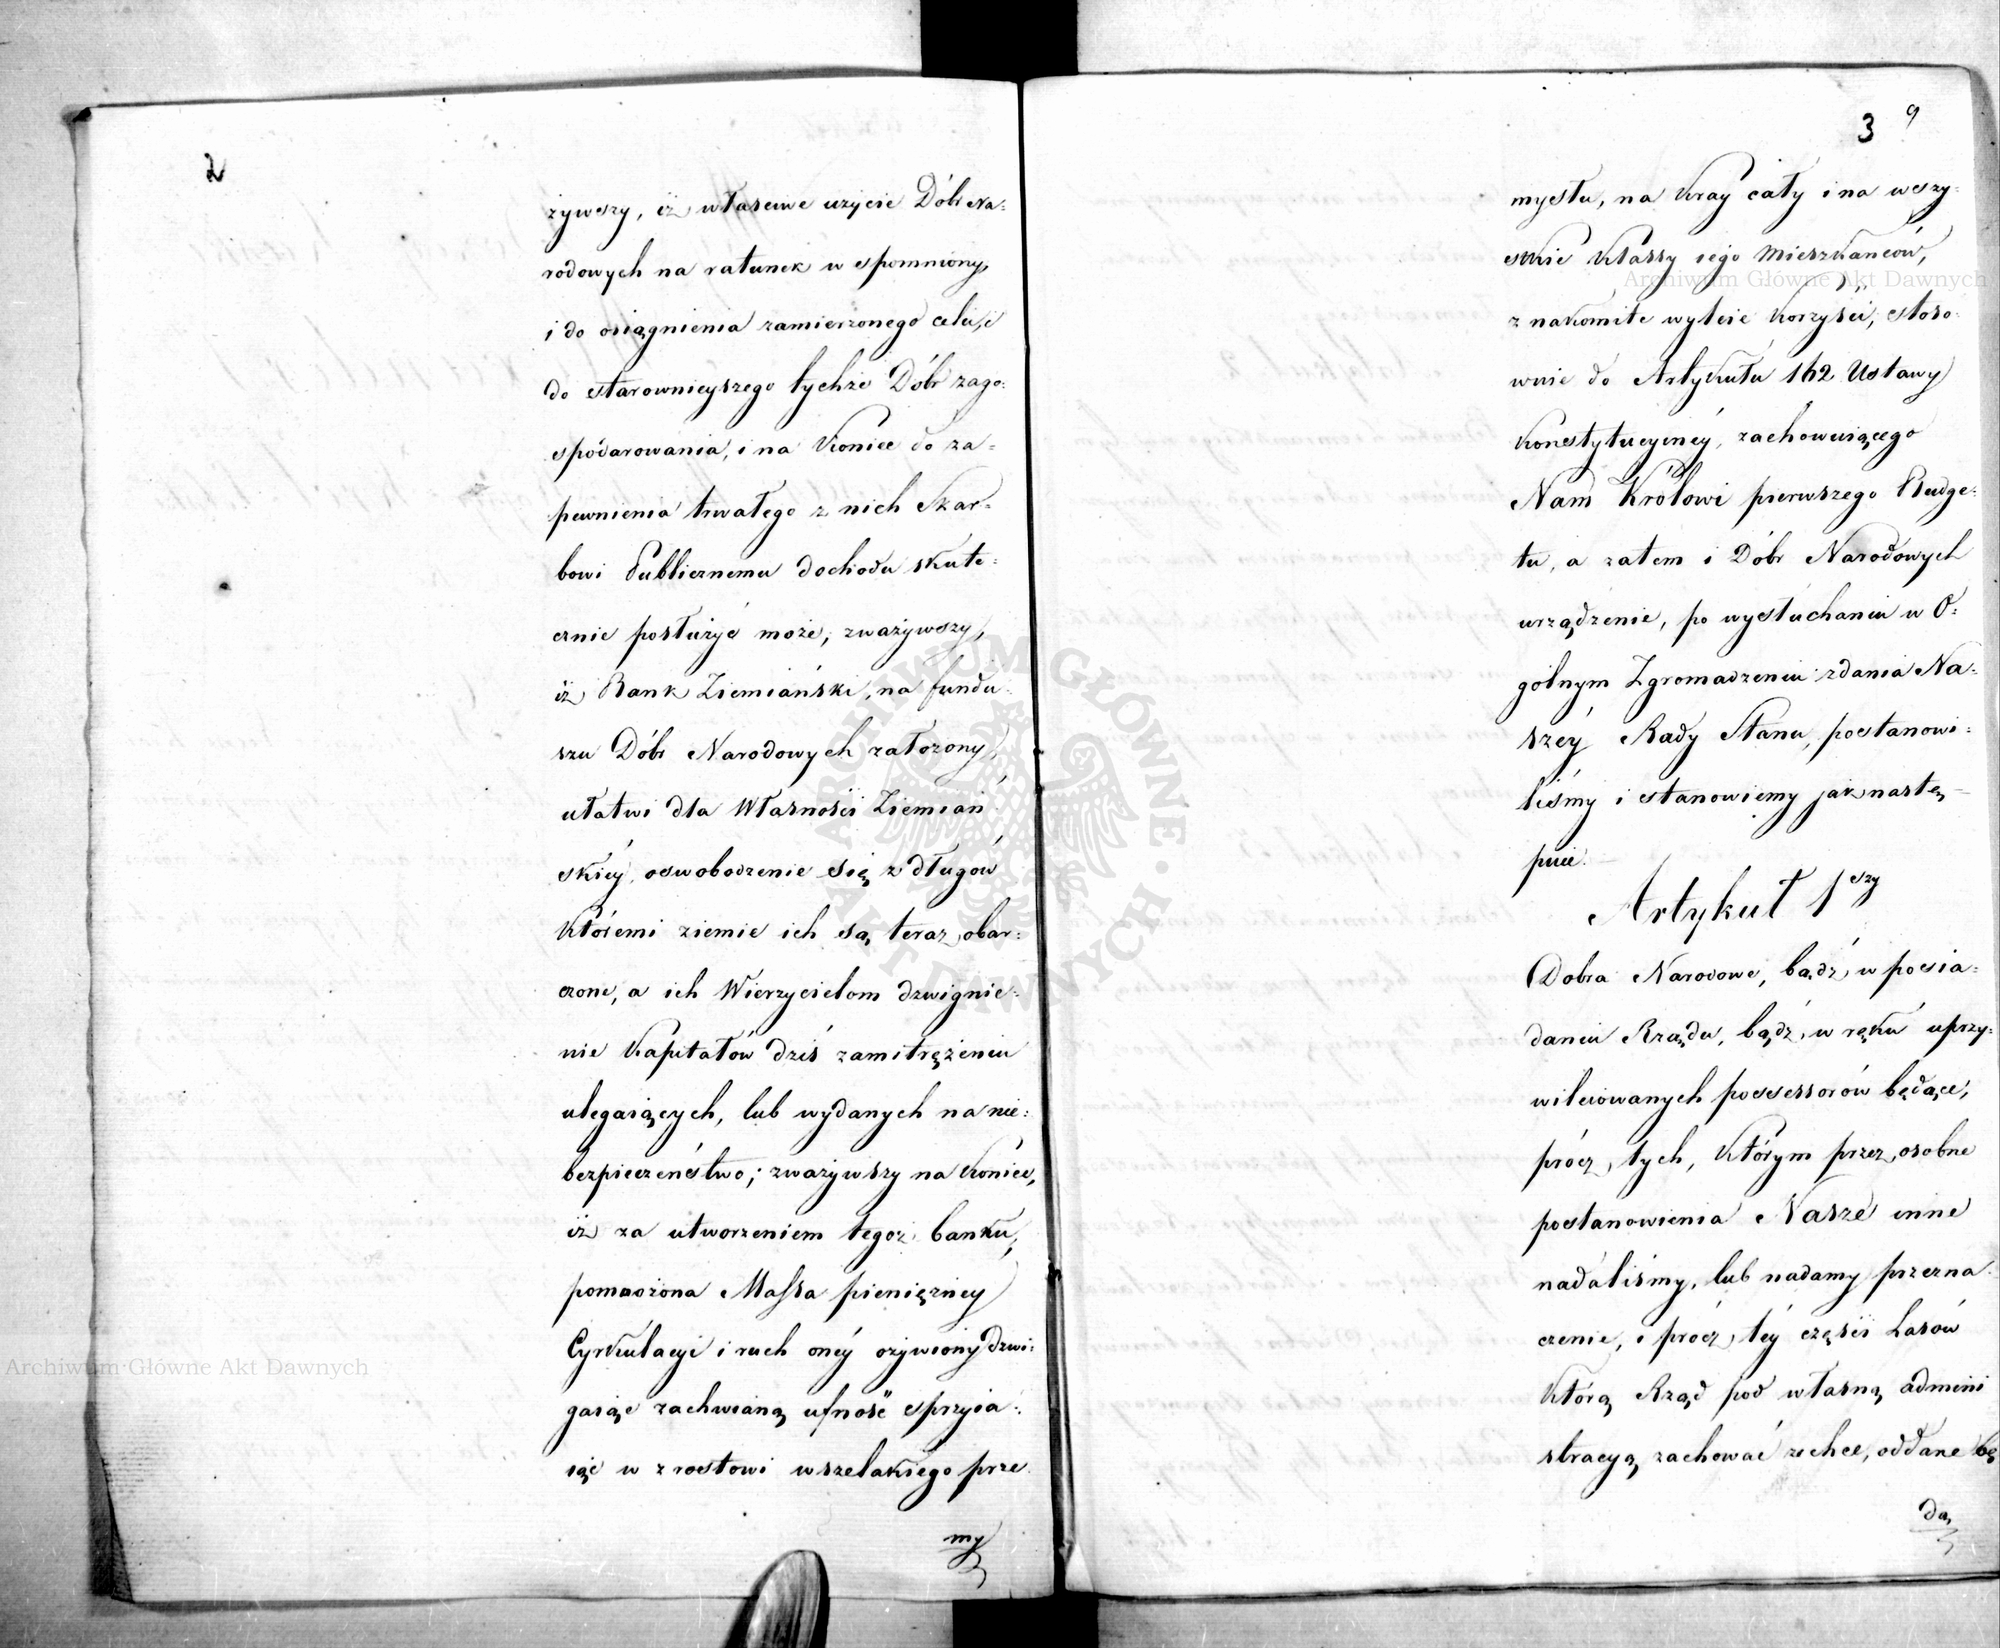 2
żywszy, iż własciwe użycie Dóbr Na:
rodowych na ratunek wspomniony,
i do osiągnienia zamierzonego celu, i
do starownieyszego tychże Dóbr zago:
spodarowania, i na koniec do za=
pewnienia trwałego z nich Skar=
bowi Publicznemu dochodu skute=
cznie posłużyć może, zważywszy,
iż Bank Ziemiański, na fundu
szu Dóbr Narodowych założony,
ułatwi dla Własności Ziemiań
skiéy oswobodzenie się z długów
któremi ziemie ich są teraz obar:
czone, a ich Wierzycielom dzwignie:
nie kapitałów dziś zamitrężeniu
ulegaiących, lub wydanych na nie:
bezpieczeństwo; zważywszy na koniec,
iż za utworzeniem tegoż banku,
pomnożona Massa pieniężney
Cyrkulacyi i ruch onéy ożywiony dzwi:
gaiąc zachwianą ufność sprzyia:
iąc wzrostowi wszelakiego prze
my
3 9
mysłu, na kray cały i na wszy:
stkie klassy iego mieszkańców,
znakomite wyleie korzyści, stoso
wnie do Artykułu 162 Ustawy
Konstytucyinéy, zachowuiącego
Nam Królowi pierwszego Budge:
tu, a zatem i Dóbr Narodowych
urządzenie, po wysłuchaniu w O:
gólnym Zgromadzeniu zdania Na:
széy Rady Stanu, postanowi:
liśmy i stanowiemy jak nastę
puie.
Artykuł 1szy
Dobra Narodowe, bądź w posia:
daniu Rządu, bądź w ręku uprzy:
wileiowanych possessorów będące,
prócz tych, którym przez osobne
postanowienia Nasze inne
nadaliśmy, lub nadamy przezna
czenie, i prócz téy części Lasów
którą Rząd pod własną admini
stracyą zachować zechce, oddane bę
dą
Archiwum Główne Akt Dawnych
Archiwum Główne Akt Dawnych
ARCHIWUM GŁÓWNE AKT DAWNYCH